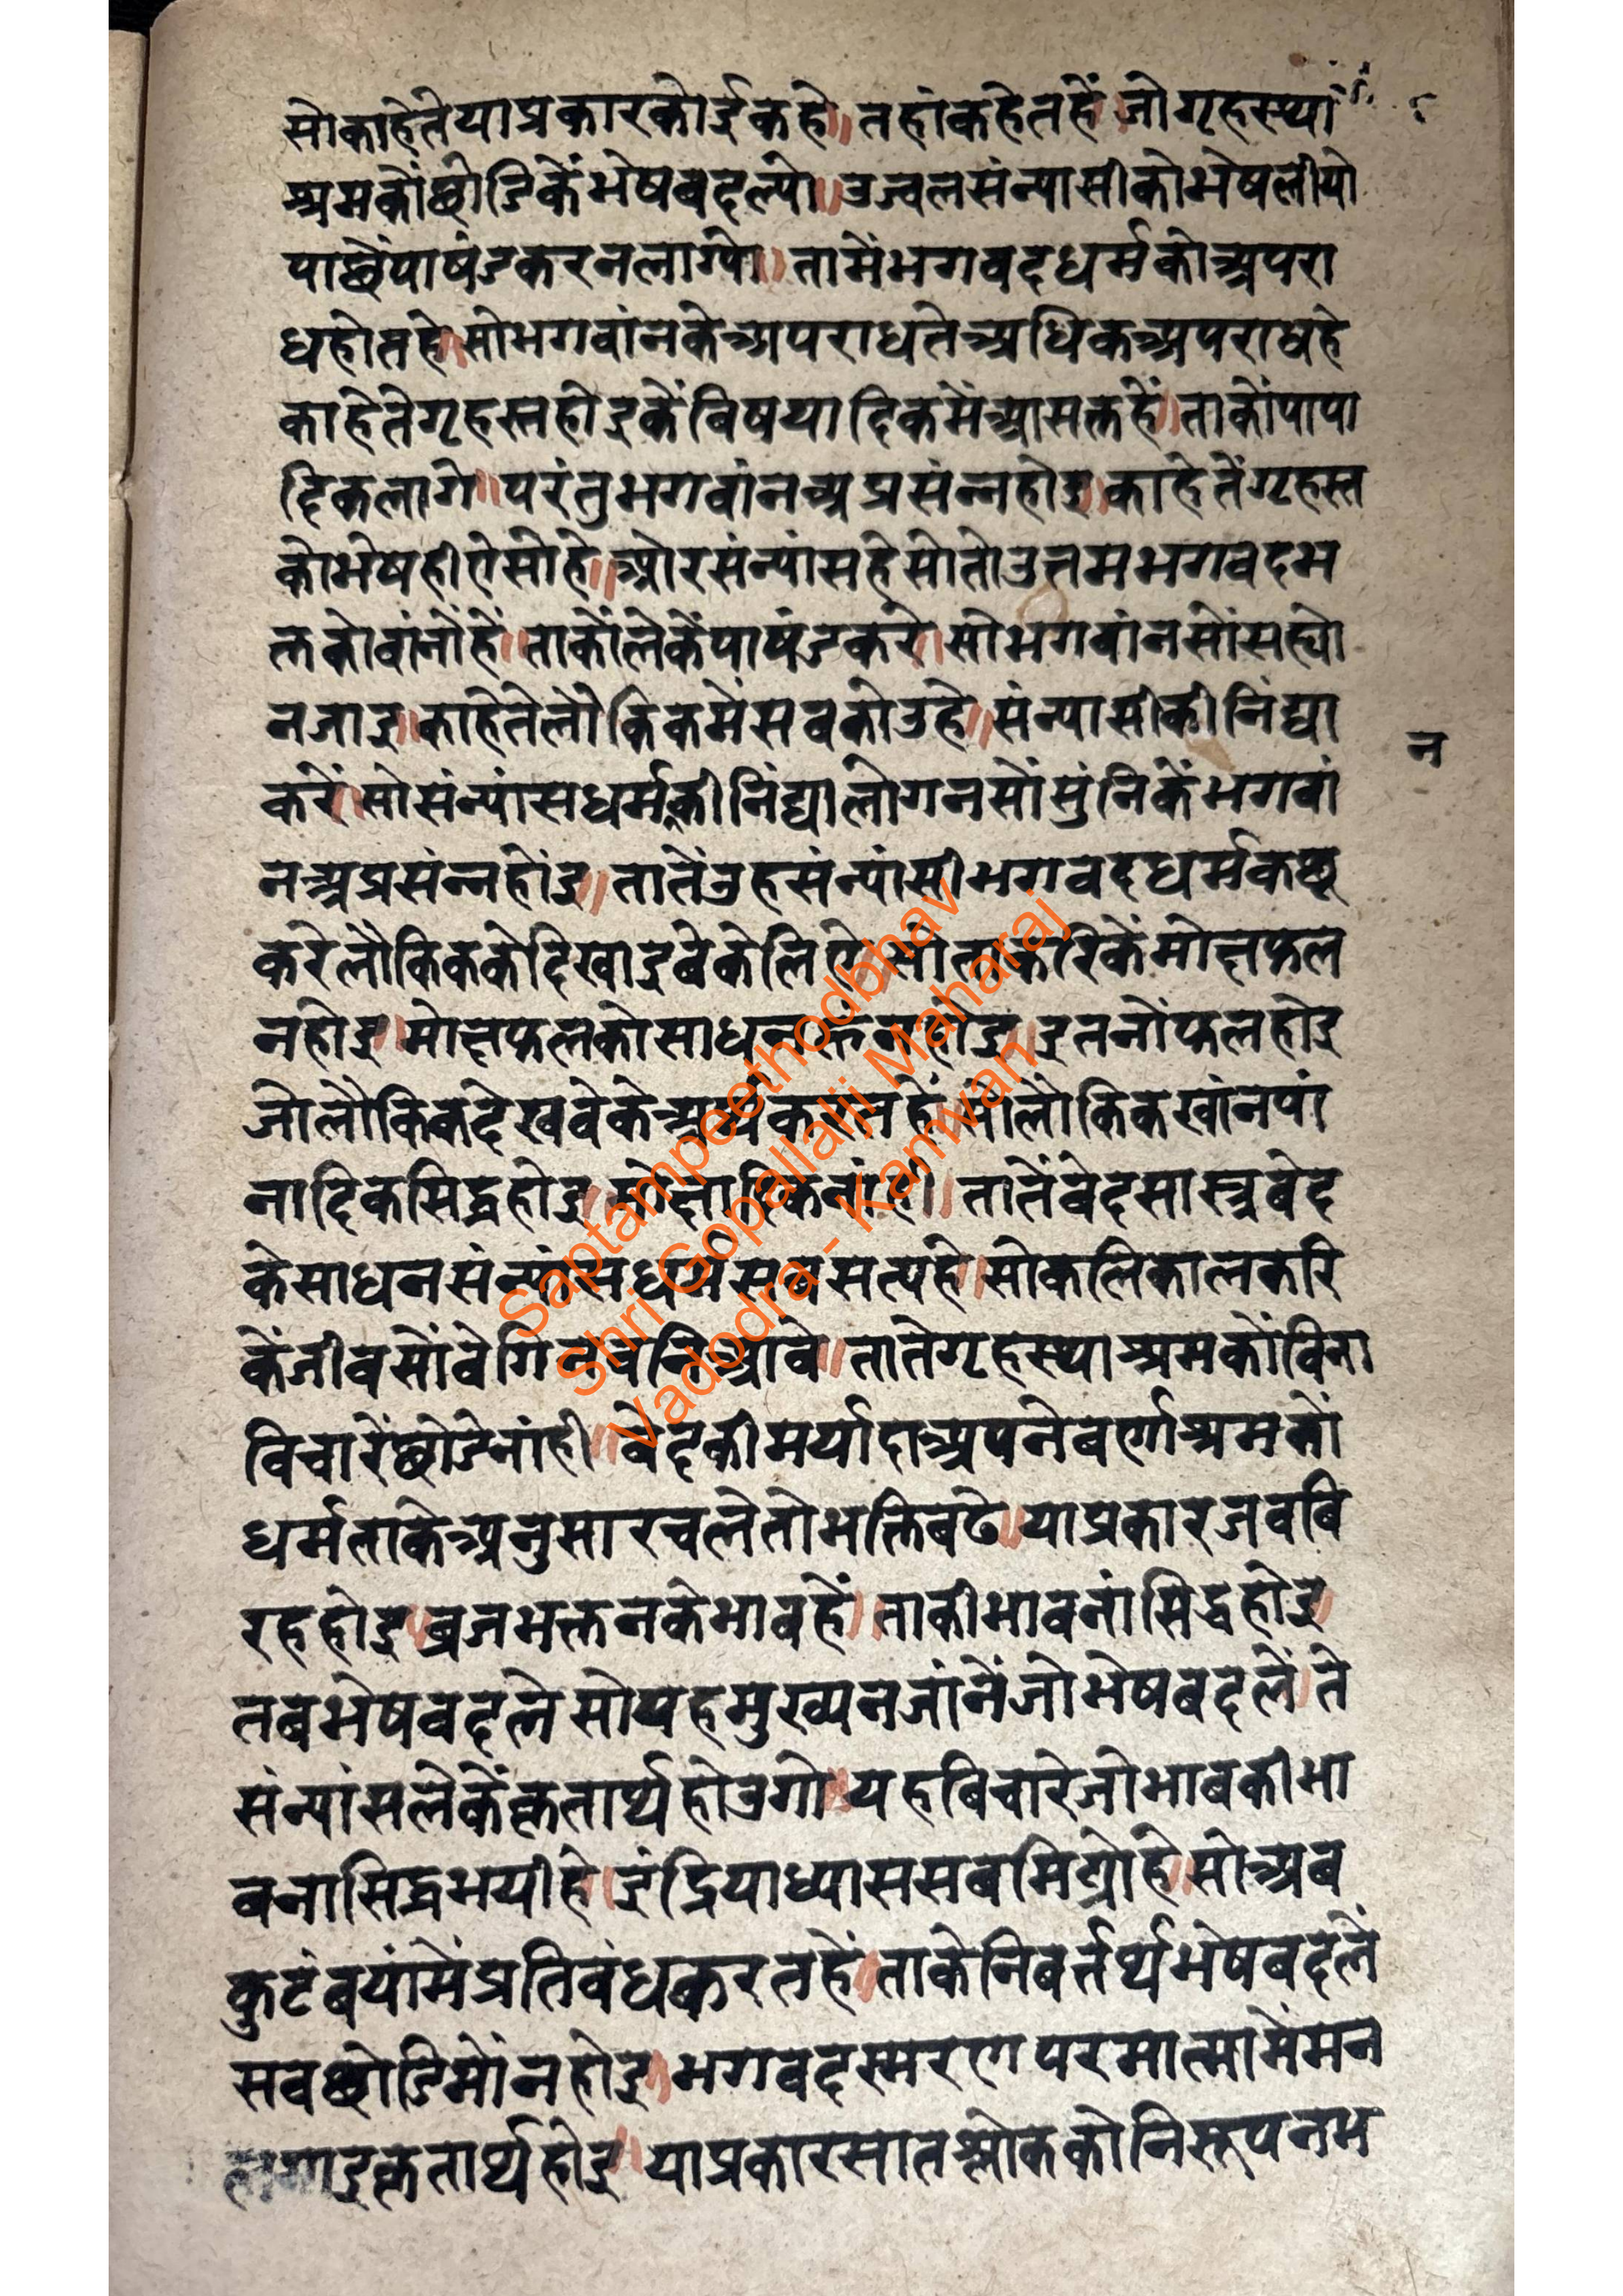 सोकाहेतेयाप्रकारकोईकहे॥तहांकहेतहें॥जोगृहस्था
श्रमकोंछोडिकेंभेषबदल्यो॥उज्वलसंन्यासीकोभेषलीयो
पाछेंपाषंडकरनलाग्यो॥तामेंभगवदधर्मकोअपरा
धहोतहे॥सोभगवांनकेअपराधतेअधिकअपराधहे
काहेतेगृहस्तहोइकेंबिषयादिकमेंआसक्तहें॥ताकोंपापा
दिकलागे॥परंतुभगवांनअप्रसंन्नहोइ॥काहेतेंगृहस्त
कोभेषहीऐसोहे॥ओरसंन्यांसहेसोतोउत्तमभगवदभ
क्तकोबांनोंहें॥ताकोंलेकेंपाषंडकरे॥सोभगवांनसोंसह्यो
नजाइ॥काहेतेलौकिकमेंसबकोउहे॥संन्यासीकीनिंद्या
न
करें॥सोसंन्यांसधर्मकीनिंद्यालोगनसोंसुंनिकेंभगवां
नअप्रसंन्नहोंइ॥तातेंउहसंन्यांसीभगवदधर्मकछू
करेलौकिककेदिखाइबेकेलिऐ॥सोताकरिकेंमोक्षफल
नहोइ॥मोक्षफलकोसाधनहूंनहोइ॥इतनोंफलहोइ
जोलौकिकदेखवेकेअर्थकरतहें॥सोलौकिकखांनपां
नादिकसिद्धहोइ॥मोक्षादिकनांही॥तातेंबेदसास्त्रबेद
केसाधनसंन्यांसधर्मसबसत्यहे॥सोकलिकालकरि
केंजीबसोंबेगिनबनिआवे॥तातेगृहस्थाश्रमकोंबिना
बिचारेंछोडेनांही॥बेदकीमर्यादाअपनेबर्णाश्रमकों
धर्मताकेअनुसारचलेतोभक्तिबढे॥याप्रकारजबबि
रहहोइ॥ब्रजभक्तनकेभावहें॥ताकीभावनांसिद्धहोइ॥
तबभेषबदलेसोयहमुख्यनजांनेंजोभेषबदलें॥ते
संन्यांसलेकेंकृतार्थहोउगो॥यहबिचारेजोभाबकीभा
बनासिद्धभयीहे॥इंद्रियाध्याससबमिट्योहे॥सोअब
कुटंबयांमेंप्रतिबंधकरतहें॥ताकेनिबर्तर्थभेषबदलें
सबछोडिमोंनहोइ॥भगवदस्मरणपरमात्मामेंमन
लगाइकृतार्थहोइ॥याप्रकारसातश्लोककोनिरूपनभ
Saptampeethodbhav
Shri Gopallalji Maharaj
Vadodra - Kanwan